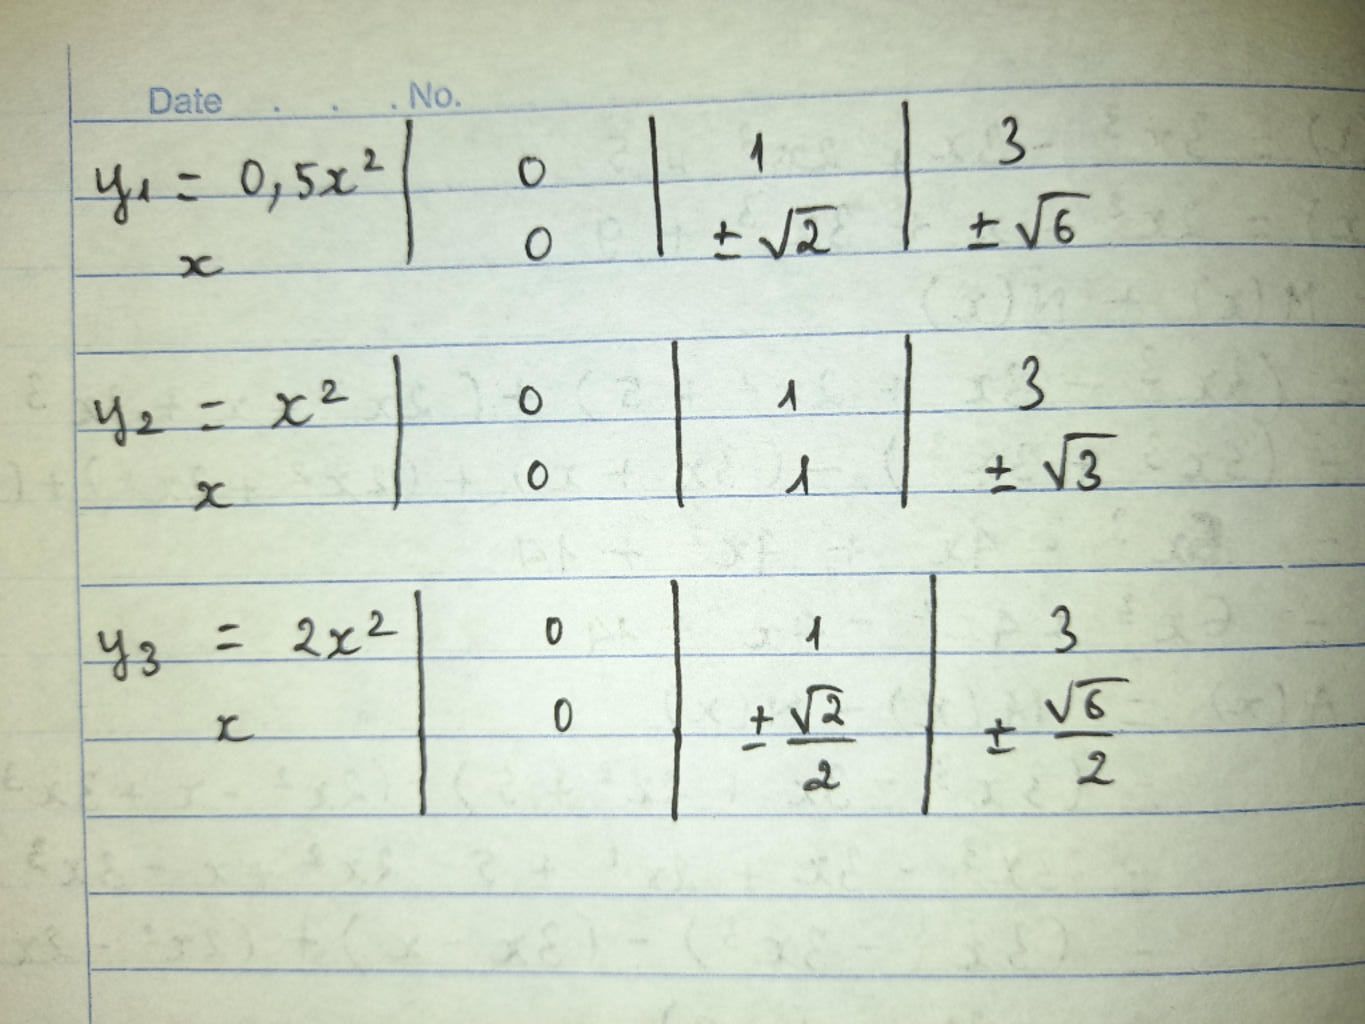 Date . . . No.
y₁ = 0,5x² | 0 | 1 | 3
x | 0 | ± √2 | ± √6
y₂ = x² | 0 | 1 | 3
x | 0 | 1 | ± √3
y₃ = 2x² | 0 | 1 | 3
x | 0 | ± √2/2 | ± √6/2